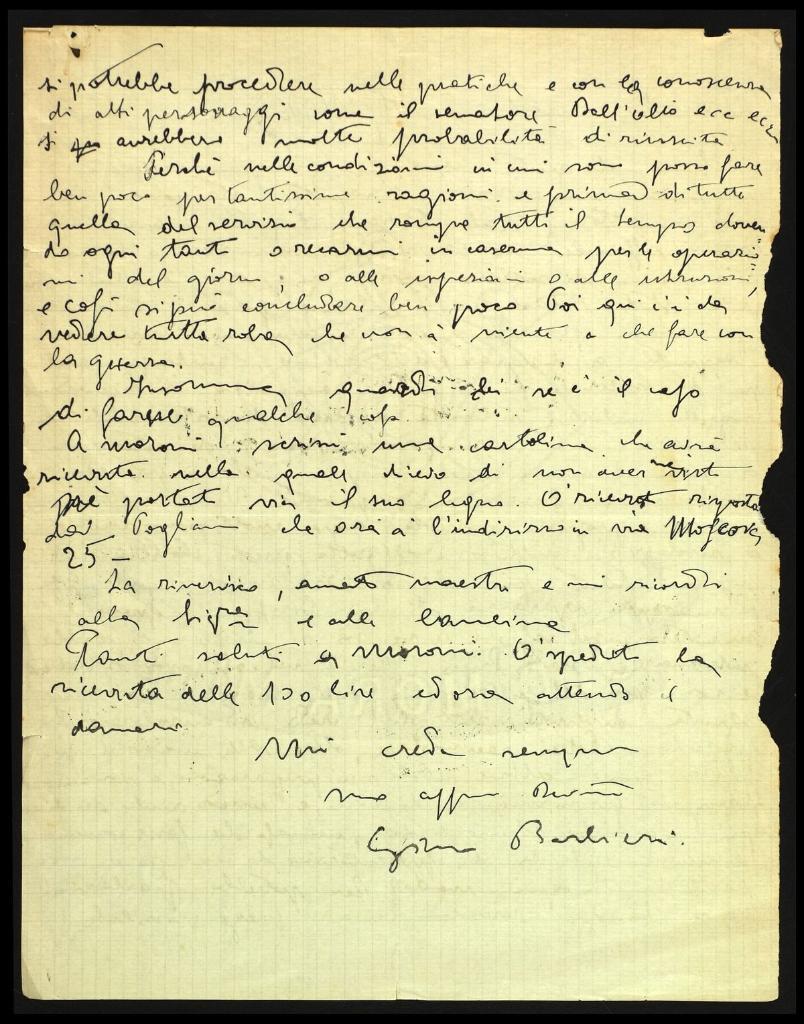 si potrebbe procedere nelle pratiche e con la conoscenza
di alti personaggi come il senatore Dall'olio ecc ecc
si avrebbero molte probabilità di riuscita
Perché nelle condizioni in cui sono posso fare
ben poco per tantissime ragioni. e prima di tutte
quella del servizio che rompe tutti il tempo doven=
do ogni tanto o recarmi in caserma per le operazio
ni del giorno, o alle ispezioni o alle istruzioni,
e così si può concludere ben poco Poi qui c'è da
vedere tutta roba che non à niente a che fare con
la guerra.
Insomma guardi lei se è il caso
di farne qualche cosa.
A Moroni scrissi una cartolina che avrà
ricevuta nella quale dicevo di non aver ne visto
né portato via il suo legno. O ricevuto risposta
dal Pogliani che ora à l'indirizzo in via Moscova
25 –
La riverisco, amato maestro e mi ricordi
alla Sigra e alla
Tanti saluti a Moroni. O spedito la
ricevuta delle 130 lire ed ora attendo il
denaro
Mi creda sempre
suo affmo
Barbieri.